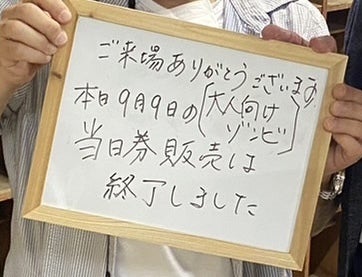 ご来場ありがとうございます
本日9月9日の(大人向け
ゾンビ)
当日券販売は
終了しました